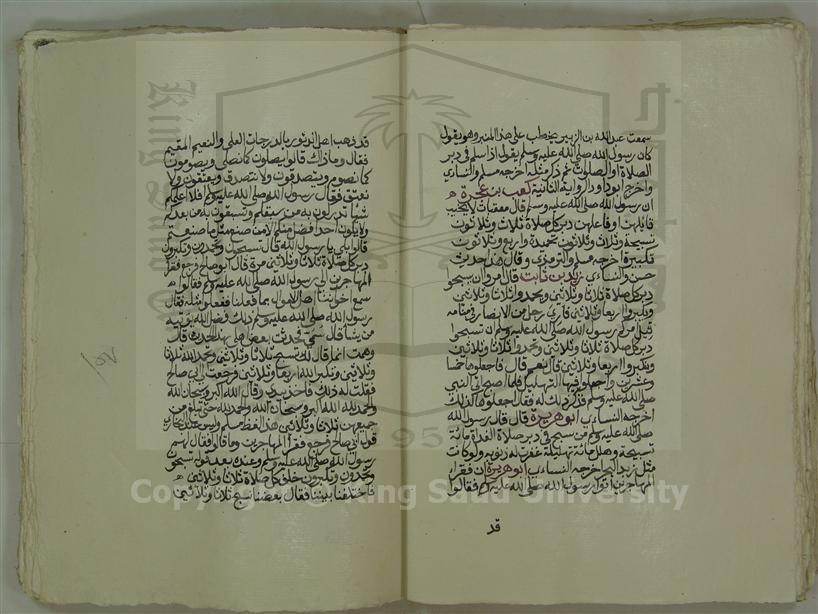 سمعت عبد الله بن الزبير يخطب على هذا المنبر وهو يقول
كان رسول الله صلى الله عليه وسلم يقول اذا سلم في دبر
الصلاة او الصلوات ثم ذكر مثله اخرجه مسلم والنساي
واخرج ابو داود الرواية الثانية كعب بن عجرة
ان رسول الله صلى الله عليه وسلم قال معقبات لا يخيب
قايلهن او فاعلهن دبر كل صلاة ثلاث وثلاثون
تسبيحة وثلاث وثلاثون تحميدة واربع وثلاثون
تكبيرة اخرجه مسلم والترمذي وقال هذا حديث
حسن والنساءي زيد بن ثابت قال امروا ان يسبحوا
دبر كل صلاة ثلاثا وثلاثين ويحمدوا ثلاثا وثلاثين
ويكبروا اربعا وثلاثين فاري رجل من الانصار في منامه
قيل امركم رسول الله صلى الله عليه وسلم ان تسبحوا
دبر كل صلاة ثلاثا وثلاثين وتحمدوا ثلاثا وثلاثين
وتكبروا اربعا وثلاثين قال نعم قال فاجعلوها خمسا
وعشرين واجعلوا فيها التهليل فلما اصبح اتى النبي
صلى الله عليه وسلم فذكر ذلك له فقال اجعلوها كذلك
اخرجه النساءي ابو هريرة قال قال رسول الله
صلى الله عليه وسلم من سبح في دبر صلاة الغداة مائة
تسبيحة وهلل مائة تهليلة غفرت له ذنوبه ولو كانت
مثل زبد البحر اخرجه النساءي ابو هريرة ان فقرا
المهاجرين اتوا رسول الله صلى الله عليه وسلم فقالوا
قد
قد ذهب اهل الدثور بالدرجات العلى والنعيم المقيم
فقال وما ذاك قالوا يصلون كما نصلي ويصومون
كما نصوم ويتصدقون ولا نتصدق ويعتقون ولا
نعتق فقال رسول الله صلى الله عليه وسلم افلا اعلمكم
شيا تدركون به من سبقكم وتسبقون به من بعدكم
ولا يكون احد افضل منكم الا من صنع مثل ما صنعتم
قالوا بلى يا رسول الله قال تسبحون وتحمدون وتكبرون
دبر كل صلاة ثلاثا وثلاثين مرة قال ابو صالح فرجع فقرا
المهاجرين الى رسول الله صلى الله عليه وسلم فقالوا
سمع اخواننا اهل الاموال بما فعلنا ففعلوا مثله فقال
رسول الله صلى الله عليه وسلم ذلك فضل الله يوتيه
من يشا قال سمي فحدثت بعض اهلي بهذا الحديث قال
وهمت انما قال لك تسبح ثلاثا وثلاثين وتحمد الله ثلاثا
وثلاثين وتكبر الله اربعا وثلاثين فرجعت الى ابي صالح
فقلت له ذلك فاخذ بيدي وقال الله اكبر وسبحان الله
والحمد لله الله اكبر وسبحان الله والحمد لله حتى تبلغ من
جميعهن ثلاثا وثلاثين هذا لفظ مسلم وليس عند البخاري
قول ابي صالح فرجع فقرا المهاجرين وما قالوا فقال لهم
رسول الله صلى الله عليه وسلم وعنده بعد قوله تسبحون
وتحمدون وتكبرون خلف كل صلاة ثلاثا وثلاثين
فاختلفنا بيننا فقال بعضنا نسبح ثلاثا وثلاثين
Copyright © King Saud University
King Saud University
195